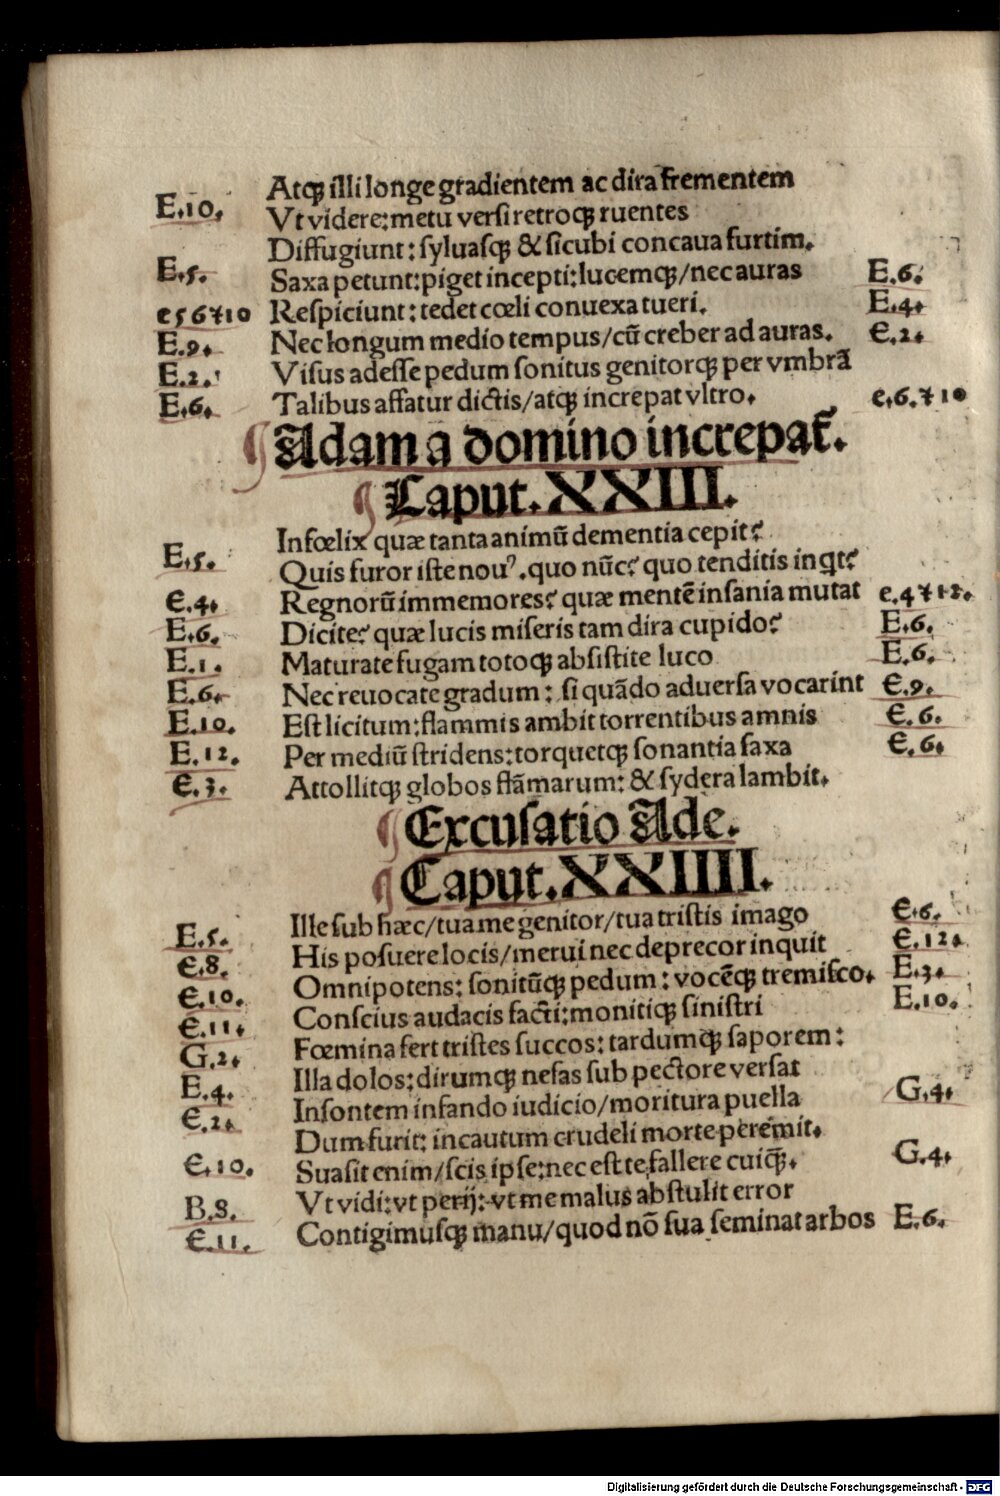 Atqꝫ illi longe gradientem ac dira frementem
E.10. Vt videre: metu versi retroqꝫ ruentes
Diffugiunt: syluasqꝫ & sicubi concaua furtim.
E.5. Saxa petunt: piget incepti: lucemqꝫ/nec auras E.6.
e 5 6 ⁊ 10 Respiciunt: tedet cœli conuexa tueri. E.4.
E.9. Nec longum medio tempus/cū creber ad auras. E.2.
E.2. Visus adesse pedum sonitus genitorqꝫ per vmbrā
E.6. Talibus affatur dictis/atqꝫ increpat vltro. e.6.⁊ 10
¶ Adam a domino increpat̄.
¶ Caput. XXIII.
Infœlix quæ tanta animū dementia cepit?
E.5. Quis furor iste nouꝰ. quo nūc? quo tenditis inqͥt?
E.4. Regnorū immemores? quæ mentē insania mutat e.4 ⁊ 12.
E.6. Dicite? quæ lucis miseris tam dira cupido? E.6.
E.1. Maturate fugam totoqꝫ absistite luco E.6.
E.6. Nec reuocate gradum: si quādo aduersa vocarint E.9.
E.10. Est licitum: flammis ambit torrentibus amnis E.6.
E.12. Per mediū stridens: torquetqꝫ sonantia saxa E.6.
E.3. Attollitqꝫ globos flāmarum: & sydera lambit.
¶ Excusatio Ade.
¶ Caput. XXIIII.
Ille sub hæc/tua me genitor/tua tristis imago E.6.
E.5. His posuere locis/merui nec deprecor inquit E.12.
E.8. Omnipotens: sonitūqꝫ pedum: vocēqꝫ tremisco. E.3.
E.10. Conscius audacis facti: monitiqꝫ sinistri E.10.
E.11. Fœmina fert tristes succos: tardumqꝫ saporem:
G.2. Illa dolos: dirumqꝫ nefas sub pectore versat
E.4. Insontem infando iudicio/moritura puella G.4.
E.2. Dum furit: incautum crudeli morte peremit.
E.10. Suasit enim/scis ipse: nec est te fallere cuiqꝫ̄. G.4.
B.8. Vt vidi: vt perij: vt me malus abstulit error
E.11. Contigimusqꝫ manu/quod nō sua seminat arbos E.6.
Digitalisierung gefördert durch die Deutsche Forschungsgemeinschaft - DFG